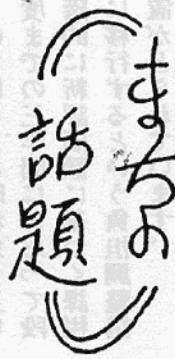 まちの
話題